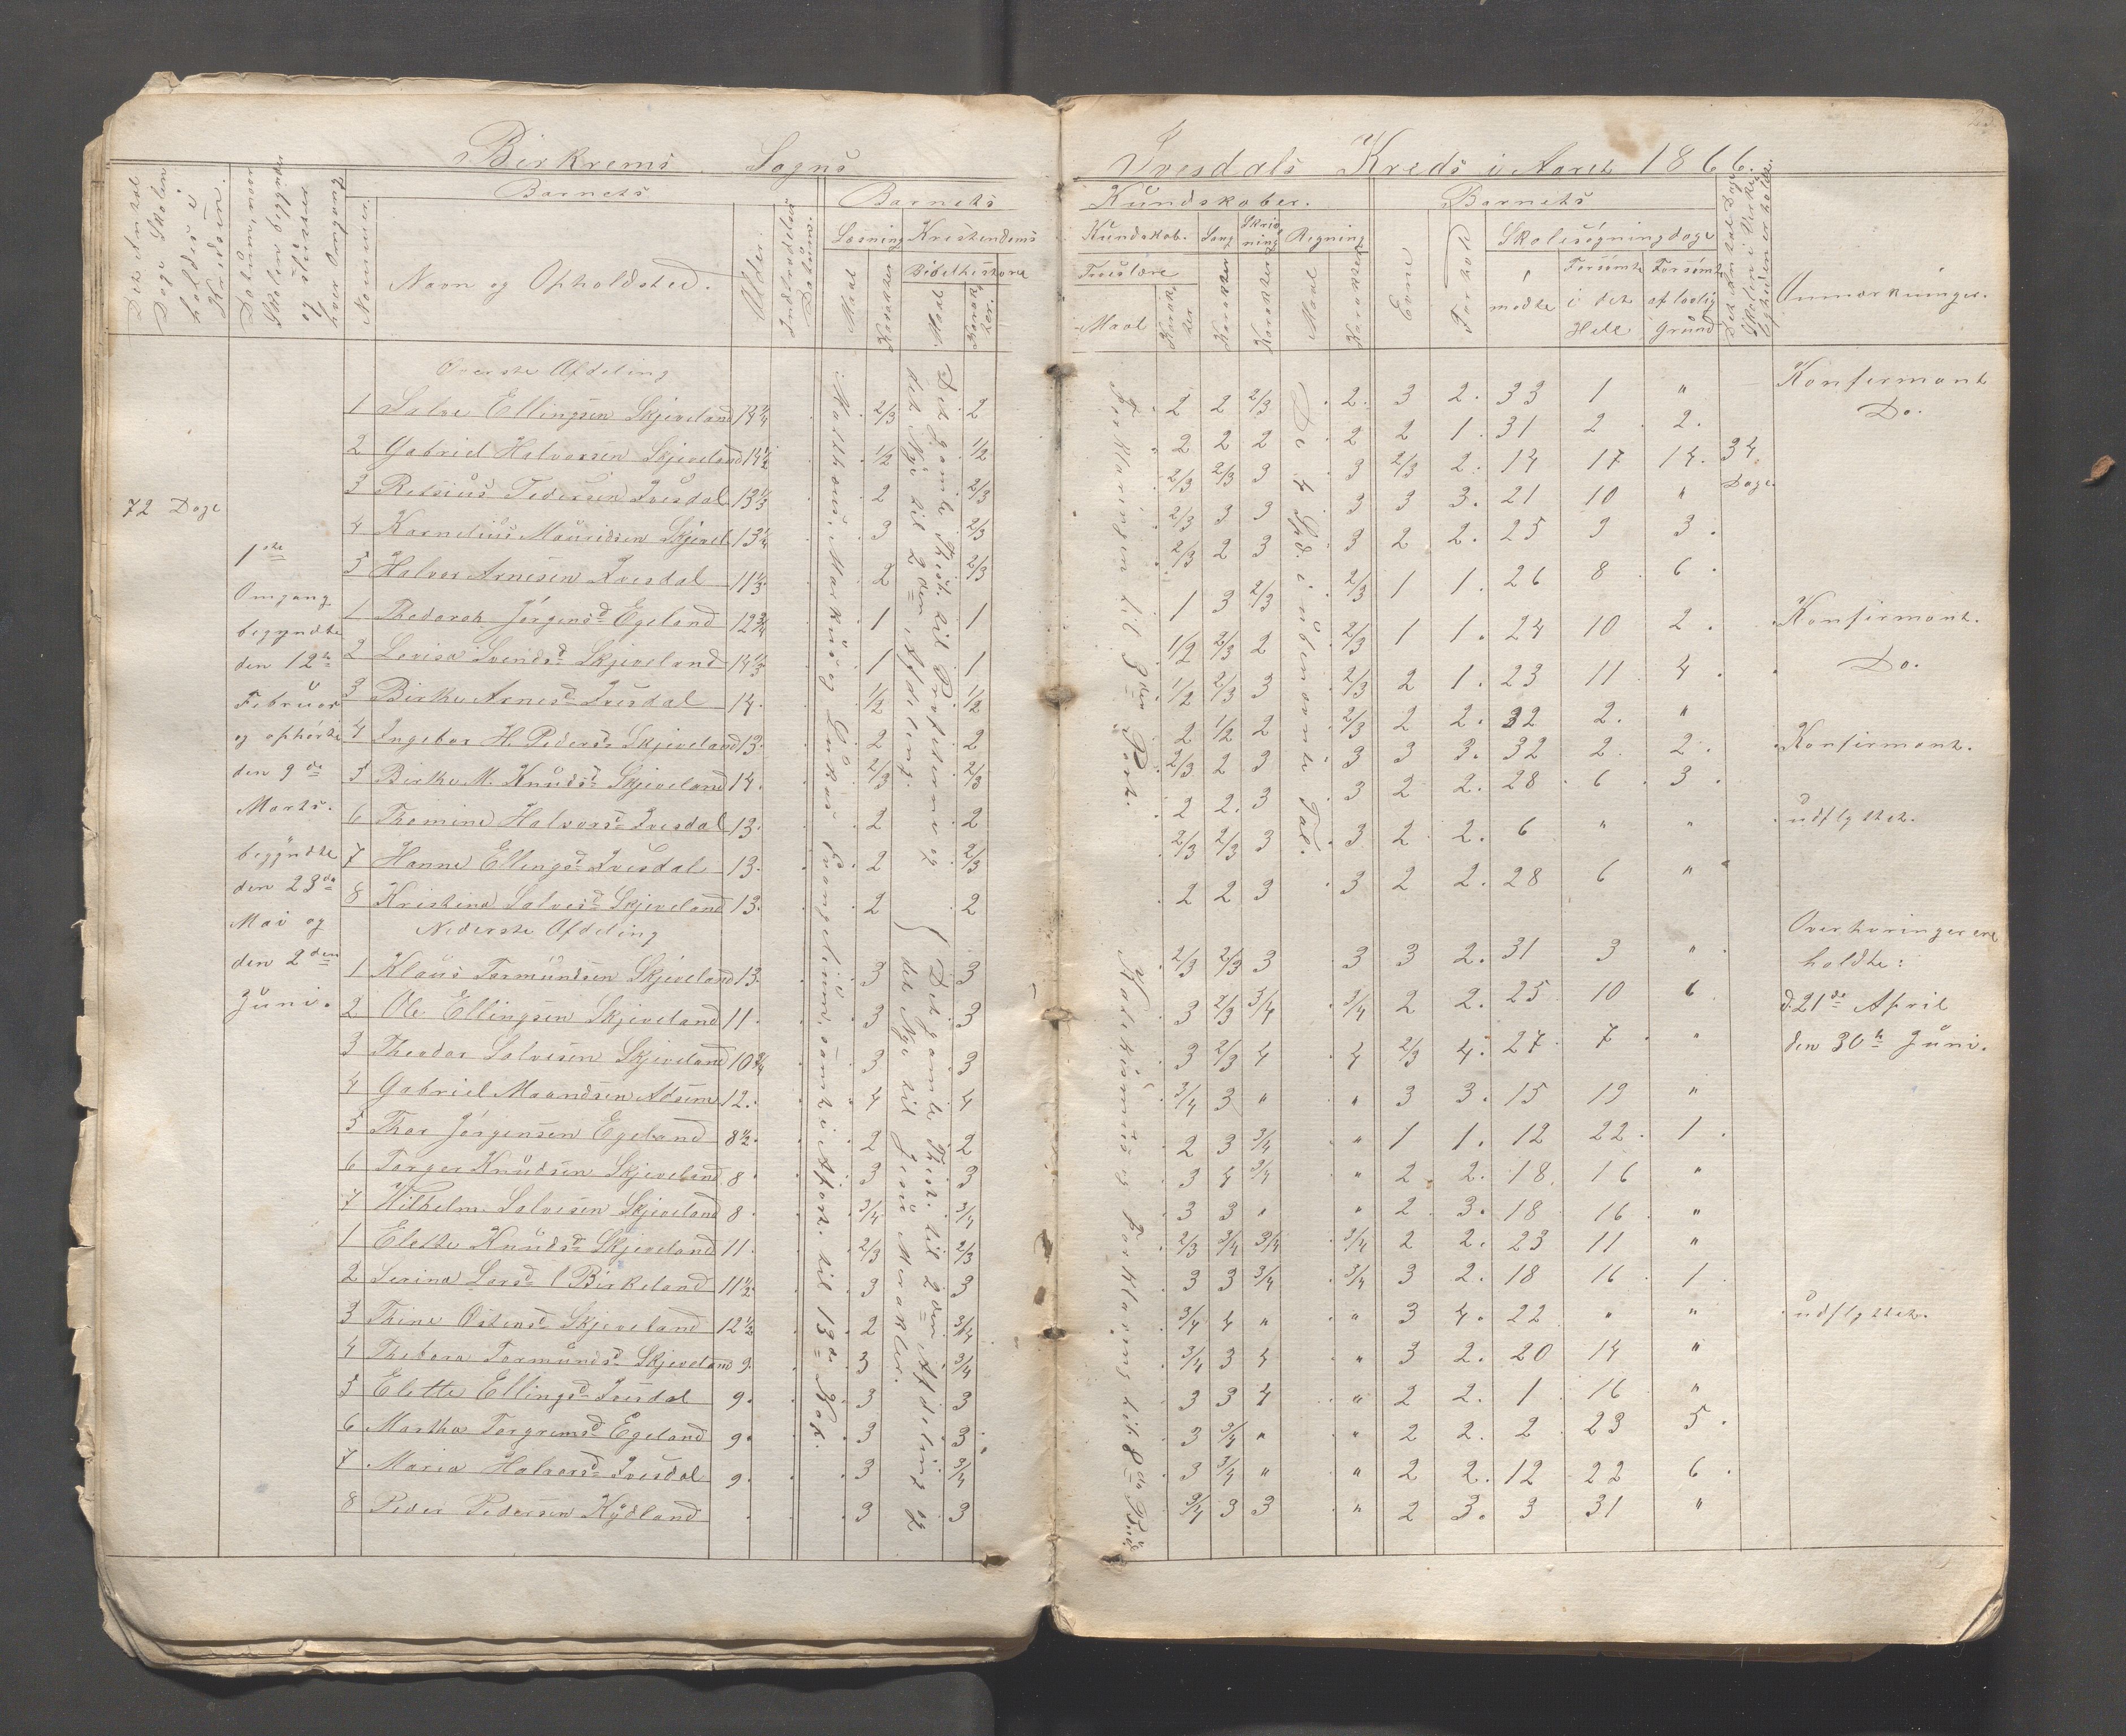 Birkrems Sogns
Ivesdals Kreds i Aaret 1866.
Det Antal Dage Skolen holdes i Kredsen.
Datum, naar Skolen begynder og slutter hver Omgang
Nummer.
Barnets
Navn og Opholdssted.
Alder.
Indtrædelses Datum.
Barnets
Læsning
Maal
Karakter
Kristendoms
Bibelhistorie
Maal.
Karakter.
Kundskaber.
Kundskab.
Troeslære
Maal
Karakter
Sang
Karakter
Skrivning
Karakter
Regning
Maal
Karakter
Barnets
Evne
Forhold
Skolesøgningdage
mødte
Forsømte i det Hele
Forsømte af lovlig Grund
Det Antal Dage Skolen i Virkeligheden er holdt.
Anmærkninger.
72 Dage
1ste
Omgang
begyndte
den 12te
Februar
og ophørte
den 9de
Marts.
begyndte
den 23de
Mai og
den 2den
Juni.
Øverste Afdeling
1 Salve Ellingsen Skjeveland 14 1/4 2/3 2 2 2 2/3 2. 3 2. 33 1 " Konfirmant
2 Gabriel Halvorsen Skjeveland 14 1/2 1/2 1/2 2 2 2 2 2 1. 31 2 2. Do.
3 Retsius Pedersen Ivesdal 13 1/3 2 2/3 2/3 2/3 3 3 2/3 2. 14 17 14. 34 Dage
4 Kornelius Mauridsen Skjevel 13 1/4 3 2/3 2/3 3 3 3 3 3. 21 10 "
5 Halvor Arnesen Ivesdal 11 1/3 2 2/3 2/3 2 3 3 2 2. 25 9 3.
1 Thedorah Jørgensd Egeland 12 3/4 1 1 1 3 2/3 2/3 1 1. 26 8 6.
2 Lovisa Svendsd Skjeveland 14 1/3 1 1 1/2 2/3 2 2/3 1 1. 24 10 2. Konfirmant.
3 Birthe Arnesd Ivesdal 14. 1/2 1/2 1/2 2/3 3 2/3 2 1. 23 11 4. Do.
4 Ingebor H. Pedersd Skjeveland 13. 2 2 2 1/2 2 2/3 2 2. 32 2. "
5 Birthe M. Knudsd Skjeveland 14. 2/3 2/3 2/3 2 3 3 3 3. 32 2 2. Konfirmant.
6 Thomine Halvorsd Ivesdal 13. 2 2 2 2. 3 3 2 2. 28 6 3.
7 Hanne Ellingsd Ivesdal 13. 2 2/3 2/3 2/3 3 3 2 2. 6 " " udflyttet.
8 Kristina Salvesd Skjeveland 13. 2 2 2 2 3 3 2 2. 28 6 "
Nederste Afdeling
1 Klaus Tormundsen Skjeveland 13. 3 3 2/3 2/3 3 3 3 2. 31 3 "
2 Ole Ellingsen Skjeveland 11. 3 3 3 2/3 3/4 3/4 2 2. 25 10 6
3 Theodor Salvesen Skjeveland 10 3/4 3 3 3 2/3 4 4 2/3 4. 27 7 "
4 Gabriel Maandsen Adsem 12. 4 4 3/4 3 " " 3 3. 15 19 "
5 Thor Jørgensen Egeland 8 1/2. 2 2 2 3 3/4 " 1 1. 12 22 1.
6 Torger Knudsen Skjeveland 8 3 3 3 4 3/4 " 2 2. 18. 16 "
7 Wilhelm Salvesen Skjeveland 8 3/4 3/4 3 3 " " 2 3. 18 16 "
1 Elette Knudsd Skjeveland 11. 2/3 2/3 2/3 3/4 3/4 3/4 2 2. 23 11 "
2 Serina Larsd Birkeland 11 1/2. 3 3 3 3 3/4 3/4 3 2. 18 16 1
3 Thine Ostensd Skjeveland 12 1/2 2 3/4 3/4 4 " " 3 4. 22 " " udflyttet.
4 Thebora Tormundsd Skjeveland 9. 3 3/4 3/4 3 4 " 3 2. 20 14 "
5 Elette Ellingsd Ivesdal 9. 3 3 3 3 4 " 2 2. 1 16 "
6 Martha Torgremsd Egeland 9. 3 3 3 3/4 " " 2 2. 2 23 5.
7 Maria Halvorsd Ivesdal 9. 3 3/4 3 3/4 " " 2 2. 12 22 6.
8 Peder Pedersen Kydland 3 3 3/4 3 3 " 2 3. 3 31 "
Matthæus, Markus og Lukas Evangelium, samt i Apost. til 13de Kap.
Det gamle Test. til Profeterne og
det Nye til 2den Afdeling.
Det gamle Test. til 2den Afdeling og
det Nye til Jesu Mirakler.
Forklaringen til 3die Part.
Katekismus og Forklaring til 8de Bud
De 4 Spd. i ubenævnte Tal.
Overhøringer ere
holdte:
d. 21de April
den 30te Juni.